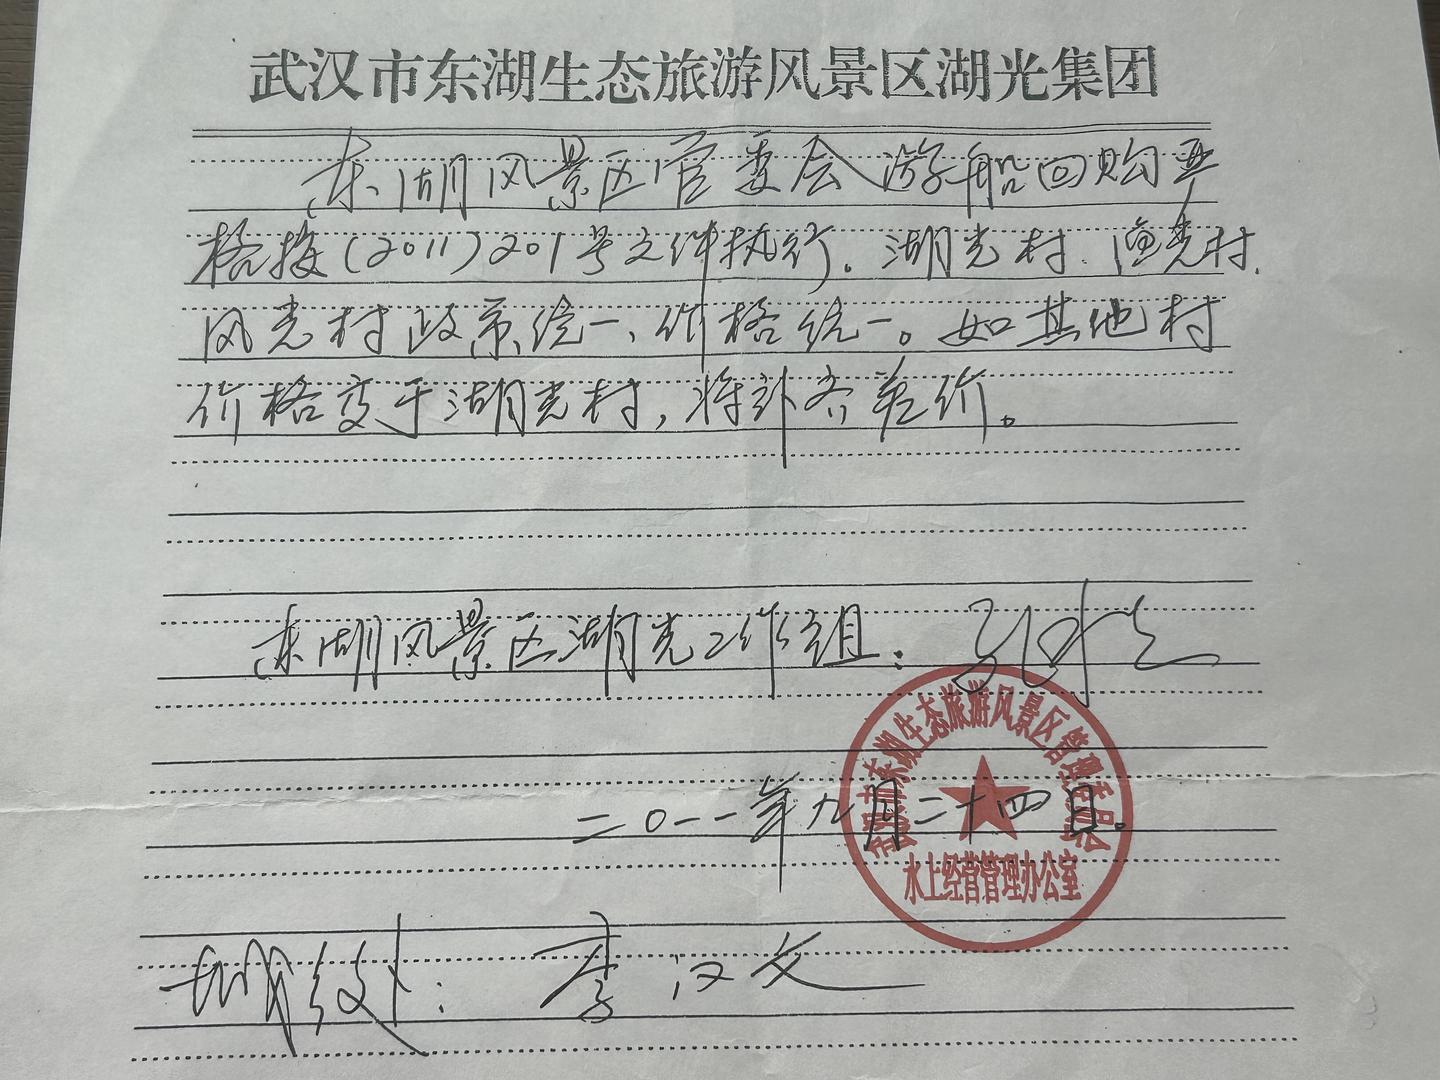 武汉市东湖生态旅游风景区湖光集团
东湖风景区管委会游船回购严
格按(2011)201号文件执行。湖光村、渔光村、
风光村政策统一、价格统一。如其他村
价格高于湖光村,将补齐差价。
东湖风景区湖光工作组:
武汉市东湖生态旅游风景区管理委员会
二〇一一年九月二十四日。
水上经营管理办公室
李汉文